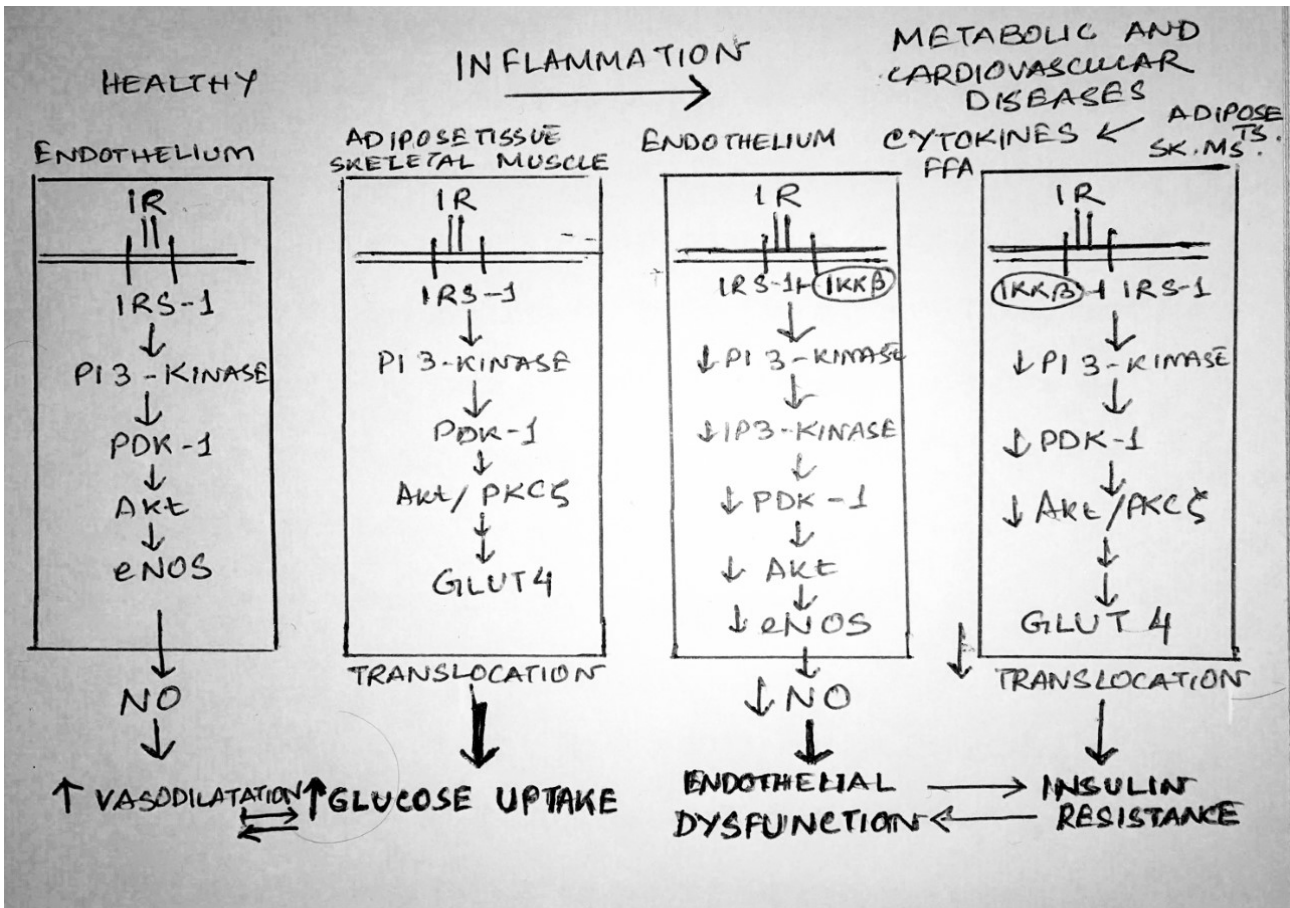 HEALTHY
INFLAMMATION
METABOLIC AND
CARDIOVASCULAR
DISEASES
ENDOTHELIUM
IR
IRS-1
↓
PI 3-KINASE
↓
PDK-1
↓
Akt
↓
eNOS
↓
NO
↓
↑ VASODILATATION
ADIPOSE TISSUE
SKELETAL MUSCLE
IR
IRS-1
↓
PI 3-KINASE
↓
PDK-1
↓
Akt/PKCζ
↓
↓
GLUT4
TRANSLOCATION
↓
↑ GLUCOSE UPTAKE
ENDOTHELIUM
IR
IRS-1 IKKβ
↓
↓ PI 3-KINASE
↓
↓ IP3-KINASE
↓
↓ PDK-1
↓
↓ Akt
↓
↓ eNOS
↓
↓ NO
↓
ENDOTHELIAL
DYSFUNCTION
CYTOKINES ← ADIPOSE TS.
FFA SK.MS.
IR
IKKβ IRS-1
↓
↓ PI 3-KINASE
↓
↓ PDK-1
↓
↓ Akt/PKCζ
↓
↓
GLUT 4
↓ TRANSLOCATION
↓
INSULIN
RESISTANCE